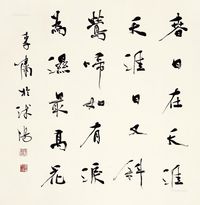 春日在天涯
天涯日又斜
鶯啼如有淚
為濕最高花
李嘯於沭陽